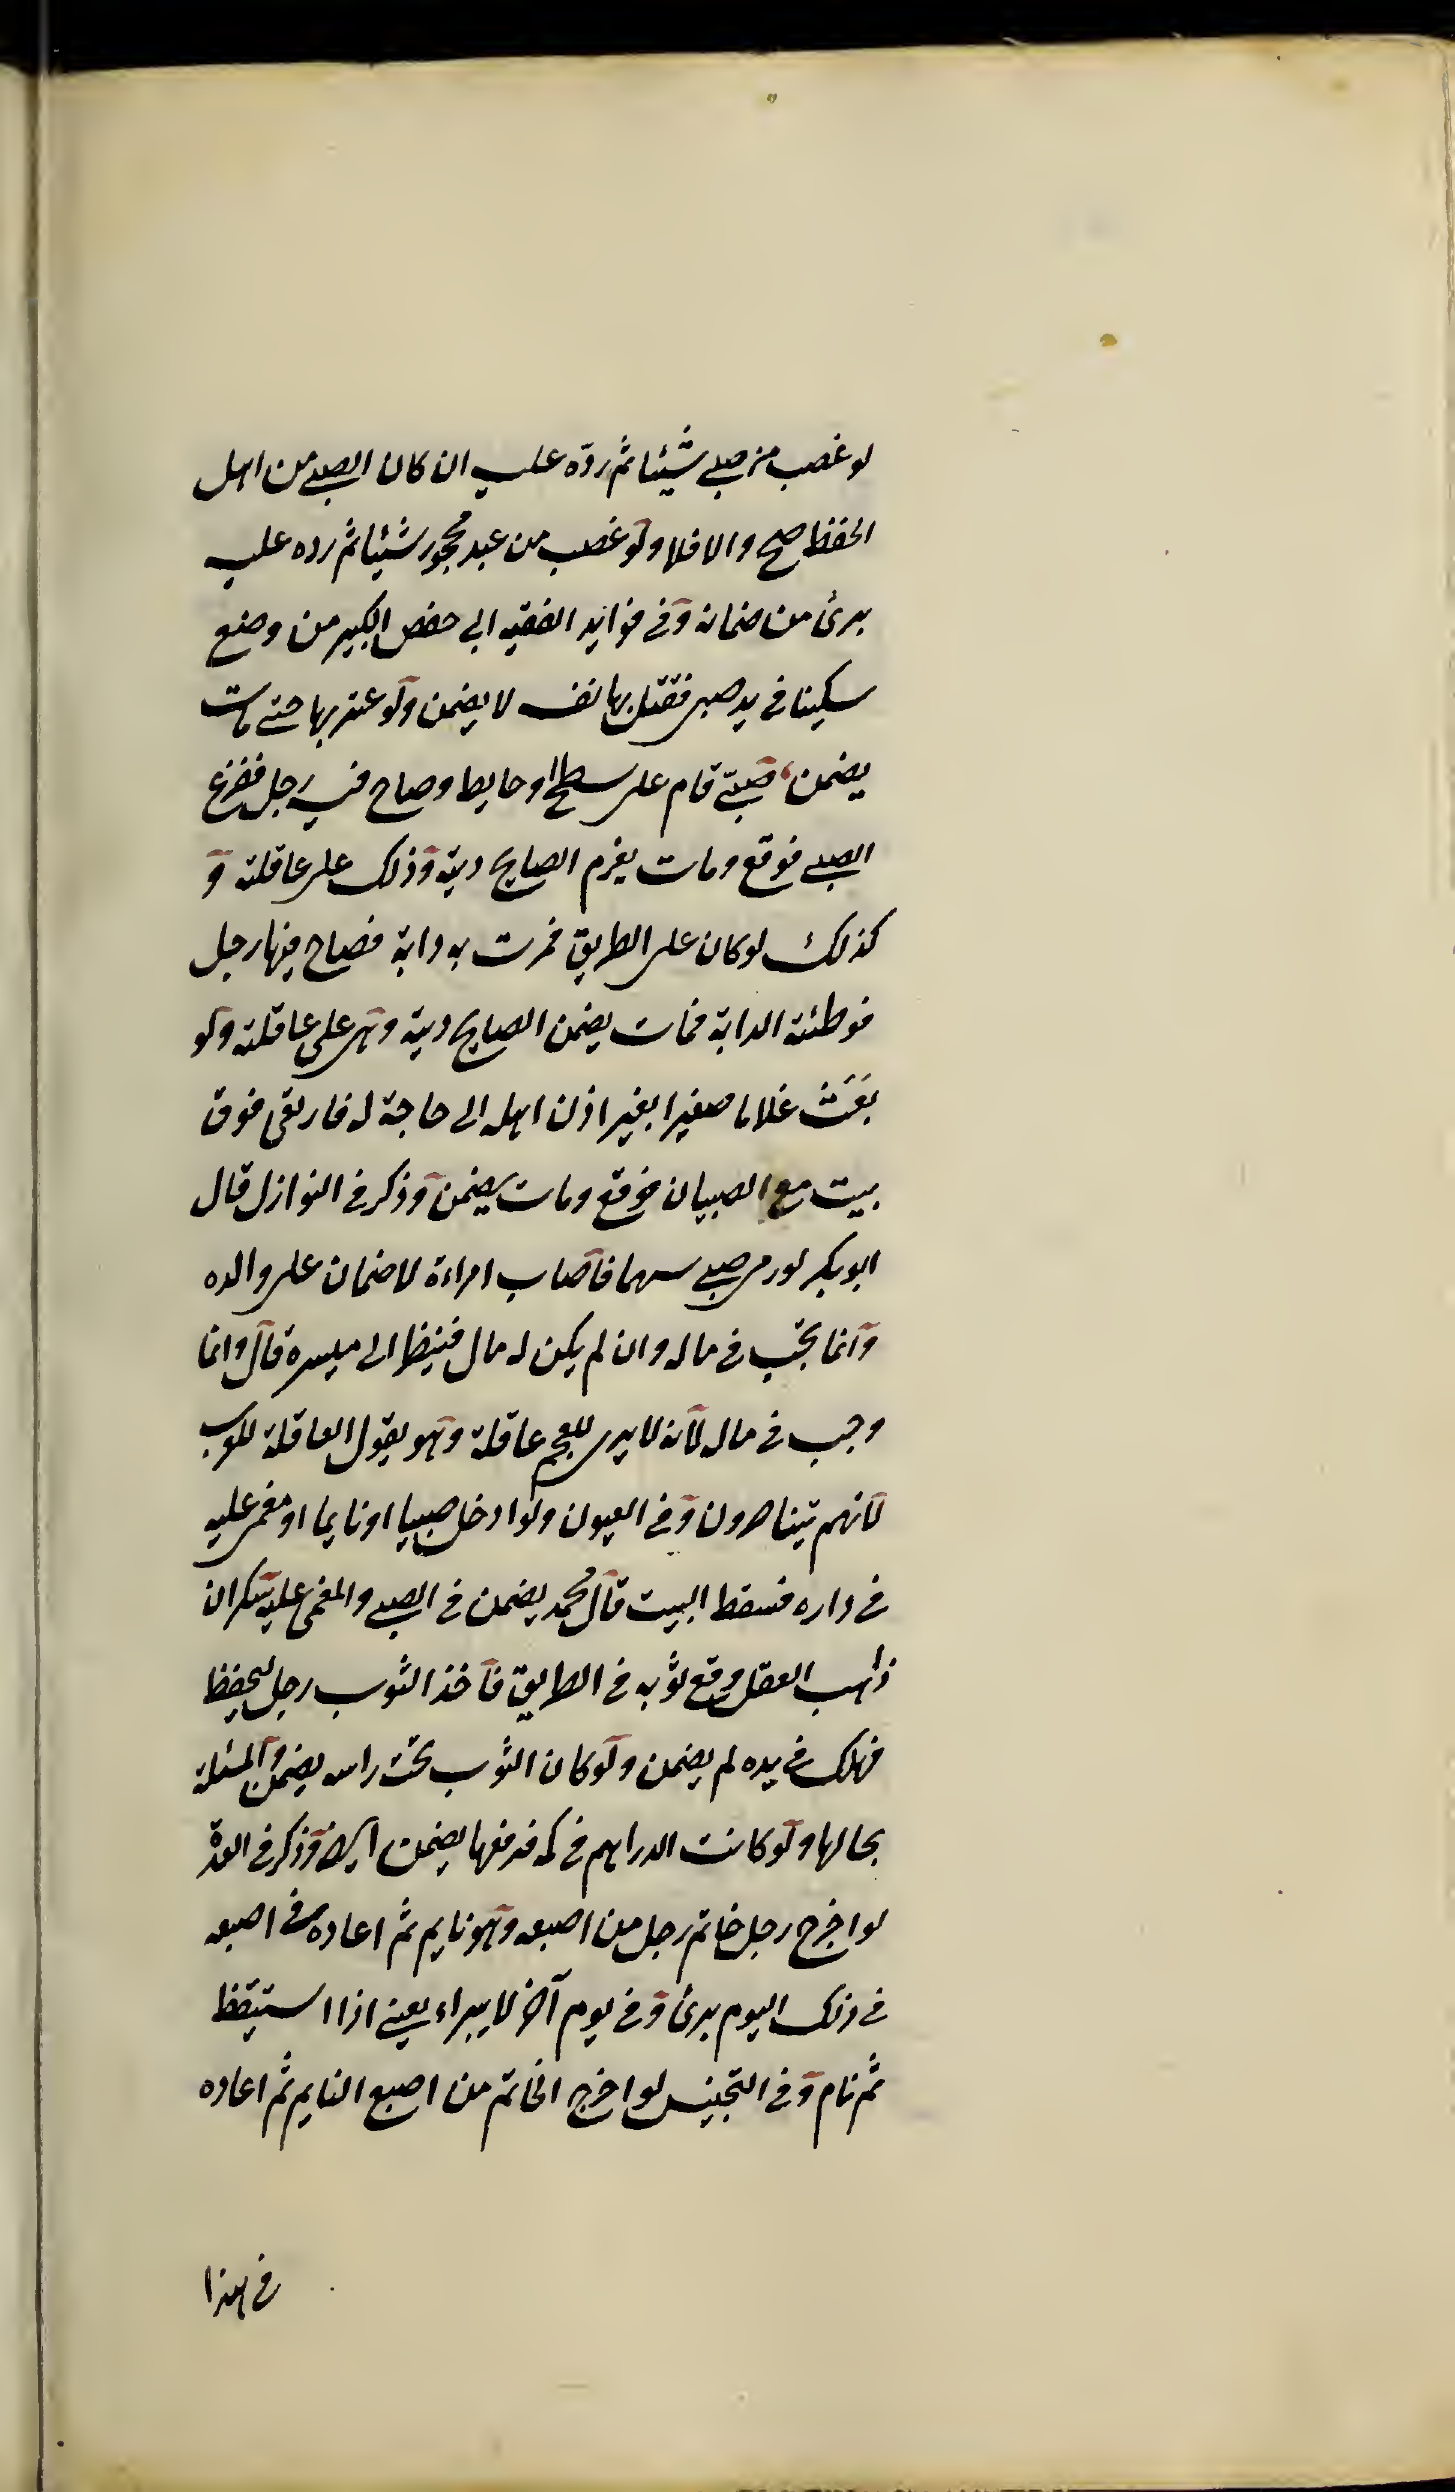 لو غصب من صبي شيئا ثم ردّه عليه ان كان الصبي من اهل
الحفظ صح والا فلا ولو غصب من عبد محجور شيئا ثم رده عليه
برئ من ضمانه وفي فوايد الفقيه ابي حفص الكبير من وضع
سكينا في يد صبي فقتل بها نفسه لا يضمن ولو عثر بها حتى مات
يضمن صبيّ قام على سطح او حايط وصاح فيه رجل ففزع
الصبي فوقع ومات يغرم الصايح ديته وذلك على عاقلته و
كذلك لو كان على الطريق فمرت به دابة فصاح فيها رجل
فوطئته الدابة فمات يضمن الصايح ديته وهي على عاقلته ولو
بَعَثَ غلاما صغيرا بغير اذن اهله الى حاجة له فارتقى فوق
بيت مع الصبيان فوقع ومات يضمن وذكر في النوازل قال
ابو بكر لو رمى صبي سهما فاصاب امراءة لا ضمان على والده
وانما يجب في ماله وان لم يكن له مال فنيظر الى ميسرة قال وانما
وجب في ماله لانه لا يرى للعجم عاقلة وهو يقول العاقلة للعرب
لانهم يتناصرون وفي العيون ولو ادخل صبيا او نايما او مغمى عليه
في داره فسقط البيت قال محمد يضمن في الصبي والمغمى عليه سكران
ذاهب العقل وقع ثوبه في الطريق فاخذ الثوب رجل ليحفظ
فهلك في يده لم يضمن ولو كان الثوب تحت راسه يضمن والمسئلة
بحالها ولو كانت الدراهم في كمه فرفعها يضمن ايضا وذكر في العدة
لو اخرج رجل خاتم رجل من اصبعه وهو نايم ثم اعاده في اصبعه
في ذلك اليوم برئ وفي يوم آخر لا يبراء يعني اذا استيقظ
ثم نام وفي التجنيس لو اخرج الخاتم من اصبع النايم ثم اعاده
في هذا